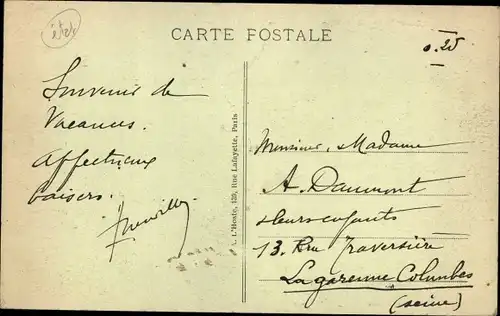 état
CARTE POSTALE
0.25
Souvenir de
Vacances.
Affectueux
baisers.
A. L'Hoste, 139, Rue Lafayette, Paris
Monsieur, Madame
A. Daumont
& leurs enfants
13. Rue Traversière
La garenne Colombes
(seine)